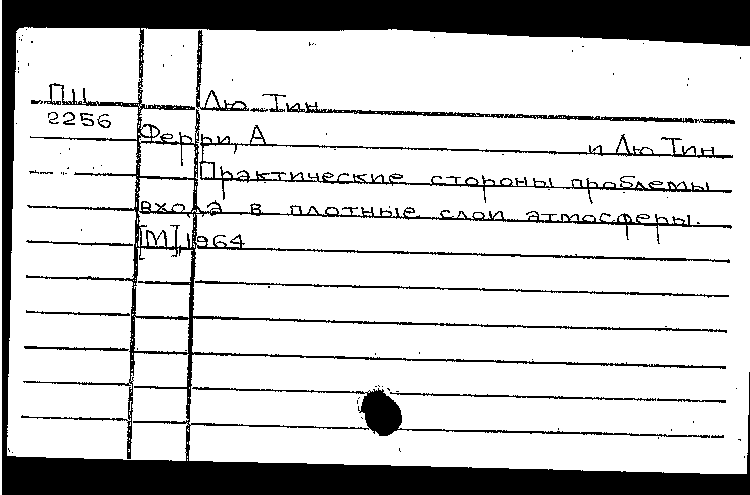 ПII Лю Тин
2256
Ферри, А и Лю Тин
Практические стороны проблемы
входа в плотные слои атмосферы.
[М], 1964